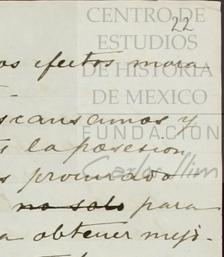 CENTRO DE
22
ESTUDIOS
os efectos mora-
DE HISTORIA
DE MEXICO
scansamos y
FUNDACIÓN
la posesion
Carlos Slim
s procurado
no solo para
a obtener mejo-